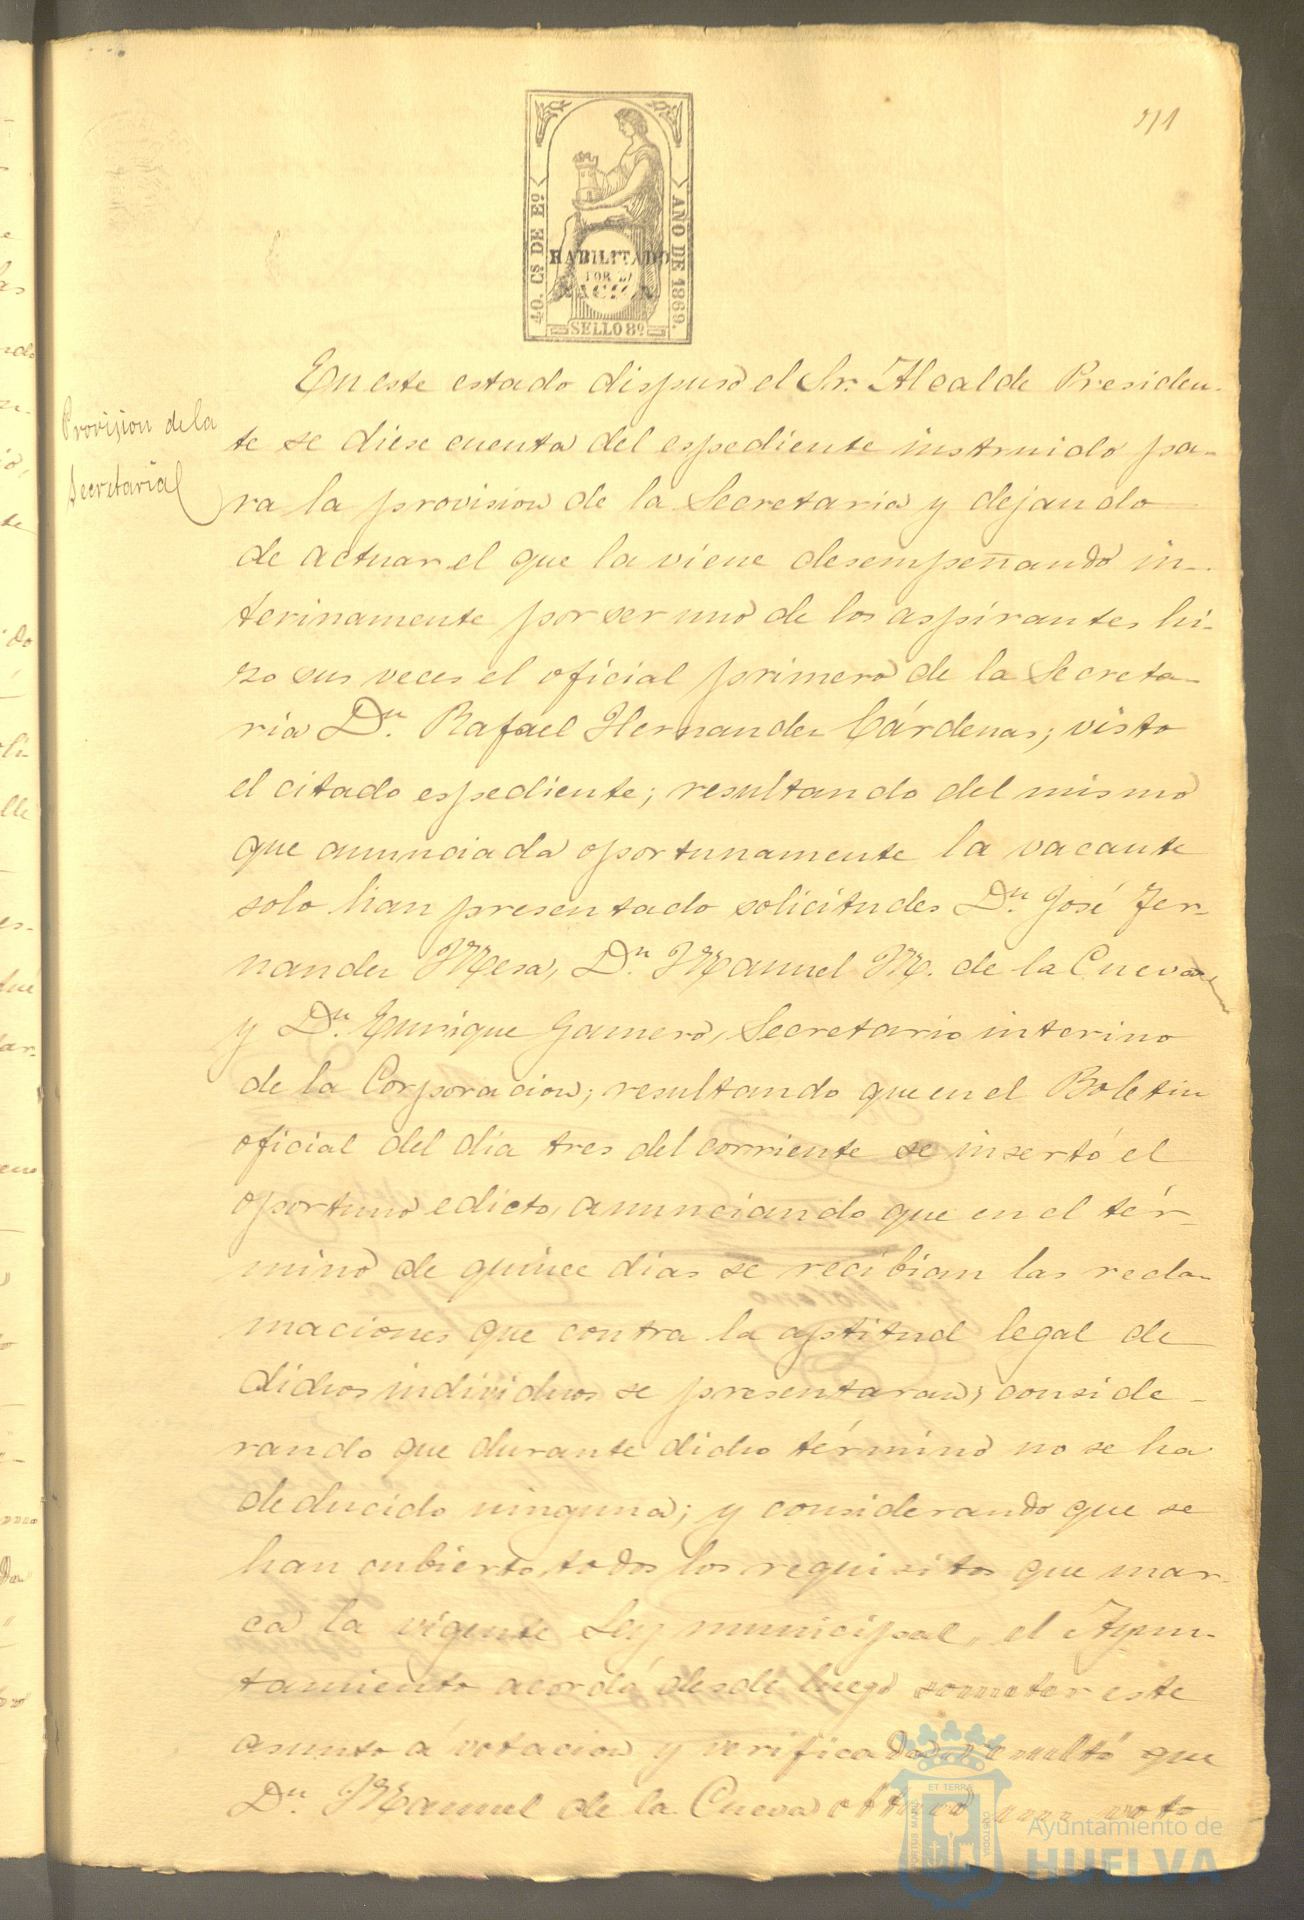 211
40. Cs. DE Eº
AÑO DE 1869.
HABILITADO
POR LA
NACION
SELLO 8º
Provision de la
Secretaria
En este estado dispuso el Sr. Alcalde Presiden-
te se diese cuenta del espediente instruido pa-
ra la provision de la Secretaria y dejando
de actuar el que la viene desempeñando in-
terinamente por ser uno de los aspirantes hi-
zo sus veces el oficial primero de la Secreta-
ria Dn. Rafael Hernandez Cárdenas; visto
el citado espediente; resultando del mismo
que anunciada oportunamente la vacante
solo han presentado solicitudes Dn. José Fer-
nandez Mesa, Dn. Manuel M. de la Cueva
y Dn. Enrique Gamero, Secretario interino
de la Corporacion; resultando que en el Boletin
oficial del dia tres del corriente se insertó el
oportuno edicto, anunciando que en el tér-
mino de quince dias se recibian las recla-
maciones que contra la aptitud legal de
dichos individuos se presentaran; conside-
rando que durante dicho término no se ha
deducido ninguna; y considerando que se
han cubierto todos los requisitos que mar-
ca la vigente Ley municipal, el Ayun-
tamiento acordó desde luego someter este
asunto á votacion y verificada resultó que
Dn. Manuel de la Cueva obtuvo un voto
ET TERRÆ
PORTUS MARIS
CUSTODIA
Ayuntamiento de
HUELVA